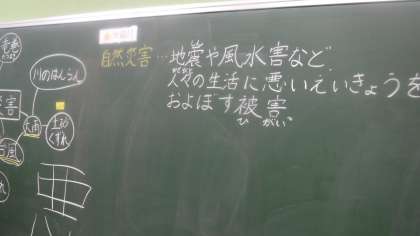 自然災害…地震や風水害など、
人々の生活に悪いえいきょうを
およぼす被害
ひがい
川のはんらん
災害
大雨
土砂くずれ
台風